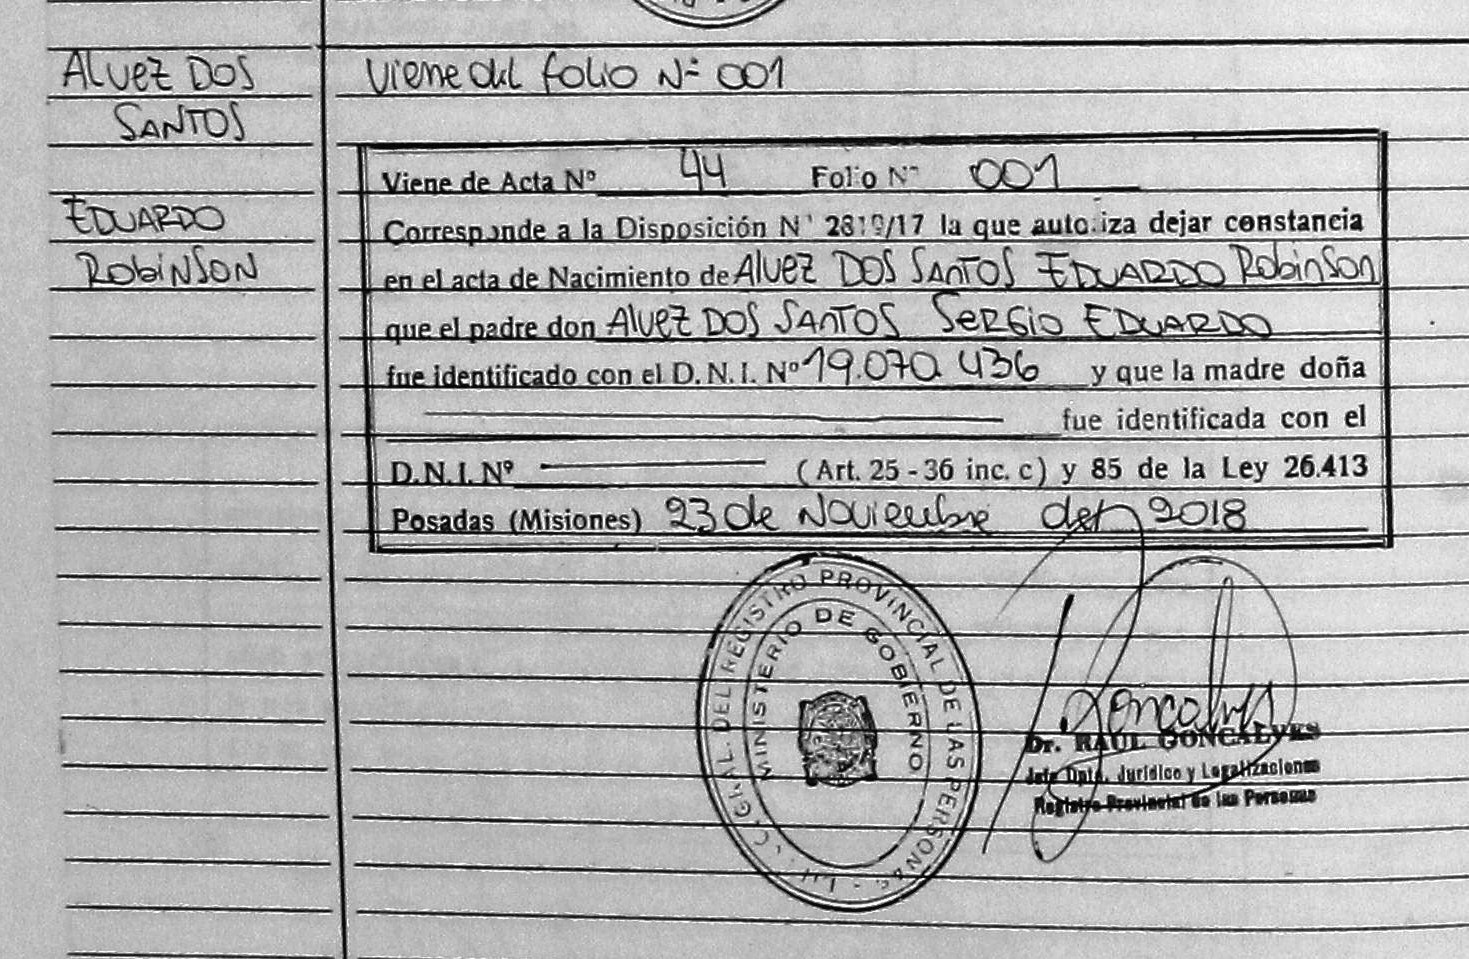 ALVEZ DOS
SANTOS
EDUARDO
ROBINSON
Viene del folio Nº 001
Viene de Acta Nº 44 Folio Nº 001
Corresponde a la Disposición Nº 2819/17 la que autoriza dejar constancia
en el acta de Nacimiento de ALVEZ DOS SANTOS EDUARDO ROBINSON
que el padre don ALVEZ DOS SANTOS SERGIO EDUARDO
fue identificado con el D. N. I. Nº 19.070.436 y que la madre doña
fue identificada con el
D.N.I. Nº (Art. 25 - 36 inc. c) y 85 de la Ley 26.413
Posadas (Misiones) 23 de Noviembre del 2018
GRAL. DEL REGISTRO PROVINCIAL DE LAS PERSONAS
MINISTERIO DE GOBIERNO
Goncalves
Dr. RAUL GONCALVES
Jefe Dpto. Jurídico y Legalizaciones
Registro Provincial de las Personas